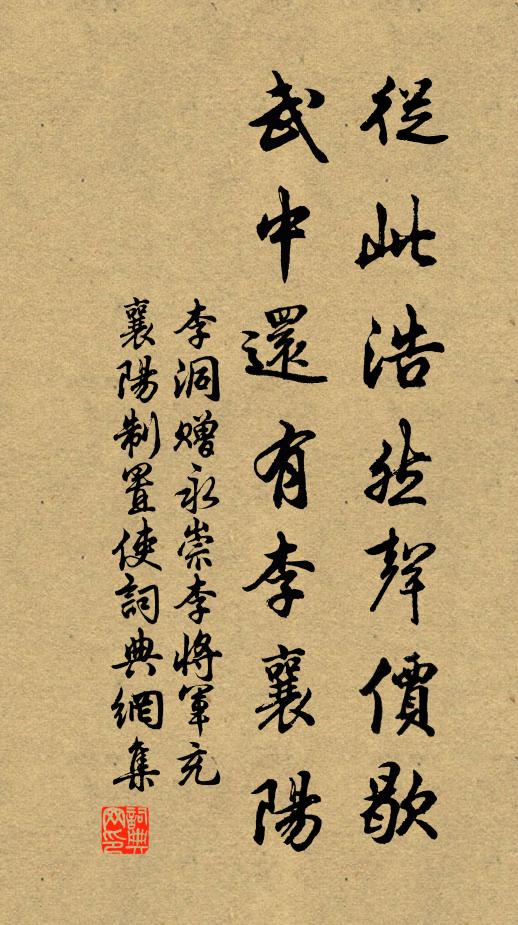 從此浩然聲價歇
武中還有李襄陽
李洞贈永崇李將軍充
襄陽制置使詞典網集
詞典网印